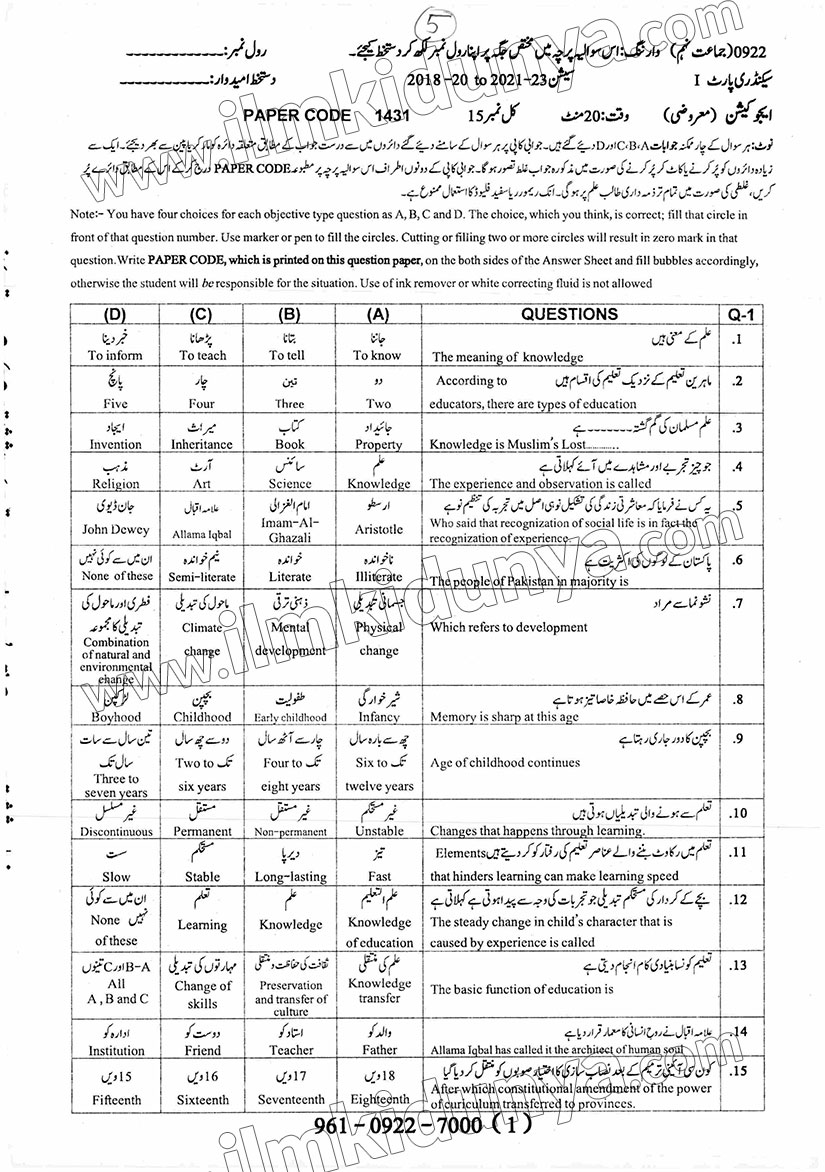 5
0922 (جماعت نہم) وارننگ: اس سوالیہ پرچہ میں مختص جگہ پر اپنا رول نمبر لکھ کر دستخط کیجئے۔ رول نمبر:
سیکنڈری پارٹ I سیشن 2018-20 to 2021-23 دستخط امیدوار:
ایجوکیشن (معروضی) وقت: 20 منٹ کل نمبر 15 PAPER CODE 1431
نوٹ:- ہر سوال کے چار ممکنہ جوابات C، B، A اور D دیئے گئے ہیں۔ جوابی کاپی پر ہر سوال کے سامنے دیئے گئے دائروں میں سے درست جواب کے مطابق متعلقہ دائرہ کو مارکر یا پین سے بھر دیجئے۔ ایک سے
زیادہ دائروں کو پُر کرنے یا کاٹ کر پُر کرنے کی صورت میں مذکورہ جواب غلط تصور ہوگا۔ جوابی کاپی کے دونوں اطراف اس سوالیہ پرچہ پر مطبوعہ PAPER CODE درج کر کے اس کے مطابق دائرے پُر
کریں، غلطی کی صورت میں تمام تر ذمہ داری طالب علم پر ہوگی۔ انک ریموور یا سفید فلیوڈ کا استعمال ممنوع ہے۔
Note:- You have four choices for each objective type question as A, B, C and D. The choice, which you think, is correct; fill that circle in
front of that question number. Use marker or pen to fill the circles. Cutting or filling two or more circles will result in zero mark in that
question. Write PAPER CODE, which is printed on this question paper, on the both sides of the Answer Sheet and fill bubbles accordingly,
otherwise the student will be responsible for the situation. Use of ink remover or white correcting fluid is not allowed
(D) (C) (B) (A) QUESTIONS Q-1
خبر دینا پڑھانا بتانا جاننا علم کے معنی ہیں .1
To inform To teach To tell To know The meaning of knowledge
پانچ چار تین دو According to ماہرین تعلیم کے نزدیک تعلیم کی اقسام ہیں .2
Five Four Three Two educators, there are types of education
ایجاد میراث کتاب جائیداد علم مسلمان کی گم گشتہ ------- ہے .3
Invention Inheritance Book Property Knowledge is Muslim's Lost............
مذہب آرٹ سائنس علم جو چیز تجربے اور مشاہدے میں آئے کہلاتی ہے .4
Religion Art Science Knowledge The experience and observation is called
جان ڈیوی علامہ اقبال امام الغزالی ارسطو یہ کس نے فرمایا کہ معاشرتی زندگی کی تشکیل نو ہی اصل میں تجربہ کی تنظیم نو ہے .5
John Dewey Allama Iqbal Imam-Al-Ghazali Aristotle Who said that recognization of social life is in fact the
recognization of experience.
ان میں سے کوئی نہیں نیم خواندہ خواندہ ناخواندہ پاکستان کے لوگوں کی اکثریت ہے .6
None of these Semi-literate Literate Illiterate The people of Pakistan in majority is
فطری اور ماحول کی تبدیلی کا مجموعہ ماحول کی تبدیلی ذہنی ترقی جسمانی تبدیلی نشوونما سے مراد .7
Combination of natural and environmental change Climate change Mental development Physical change Which refers to development
لڑکپن بچپن طفولیت شیر خوارگی عمر کے اس حصے میں حافظہ خاصا تیز ہوتا ہے .8
Boyhood Childhood Early childhood Infancy Memory is sharp at this age
تین سال سے سات سال تک دو سے چھ سال تک چار سے آٹھ سال تک چھ سے بارہ سال تک بچپن کا دور جاری رہتا ہے .9
Three to seven years Two to six years Four to eight years Six to twelve years Age of childhood continues
غیر مسلسل مستقل غیر مستقل غیر مستحکم تعلم سے ہونے والی تبدیلیاں ہوتی ہیں .10
Discontinuous Permanent Non-permanent Unstable Changes that happens through learning.
ست مستحکم دیرپا تیز Elements تعلم میں رکاوٹ بننے والے عناصر تعلیم کی رفتار کو کر دیتے ہیں .11
Slow Stable Long-lasting Fast that hinders learning can make learning speed
ان میں سے کوئی نہیں تعلم علم علم التعلیم بچے کے کردار کی مستحکم تبدیلی جو تجربات کی وجہ سے پیدا ہوتی ہے کہلاتی ہے .12
None of these Learning Knowledge Knowledge of education The steady change in child's character that is
caused by experience is called
A-B اور C تینوں مہارتوں کی تبدیلی ثقافت کی حفاظت و منتقلی علم کی منتقلی تعلیم کونسا بنیادی کام انجام دیتی ہے .13
All A , B and C Change of skills Preservation and transfer of culture Knowledge transfer The basic function of education is
ادارہ کو دوست کو استاد کو والد کو علامہ اقبال نے روح انسانی کا معمار قرار دیا ہے .14
Institution Friend Teacher Father Allama Iqbal has called it the architect of human soul
15ویں 16ویں 17ویں 18ویں کون سی آئینی ترمیم کے بعد نصاب سازی کا اختیار صوبوں کو منتقل کر دیا گیا .15
Fifteenth Sixteenth Seventeenth Eighteenth After which constitutional amendment of the power
of curiculum transferred to provinces.
961-0922-7000 (1)
www.ilmkidunya.com
www.ilmkidunya.com
www.ilmkidunya.com
ilmkidunya.com